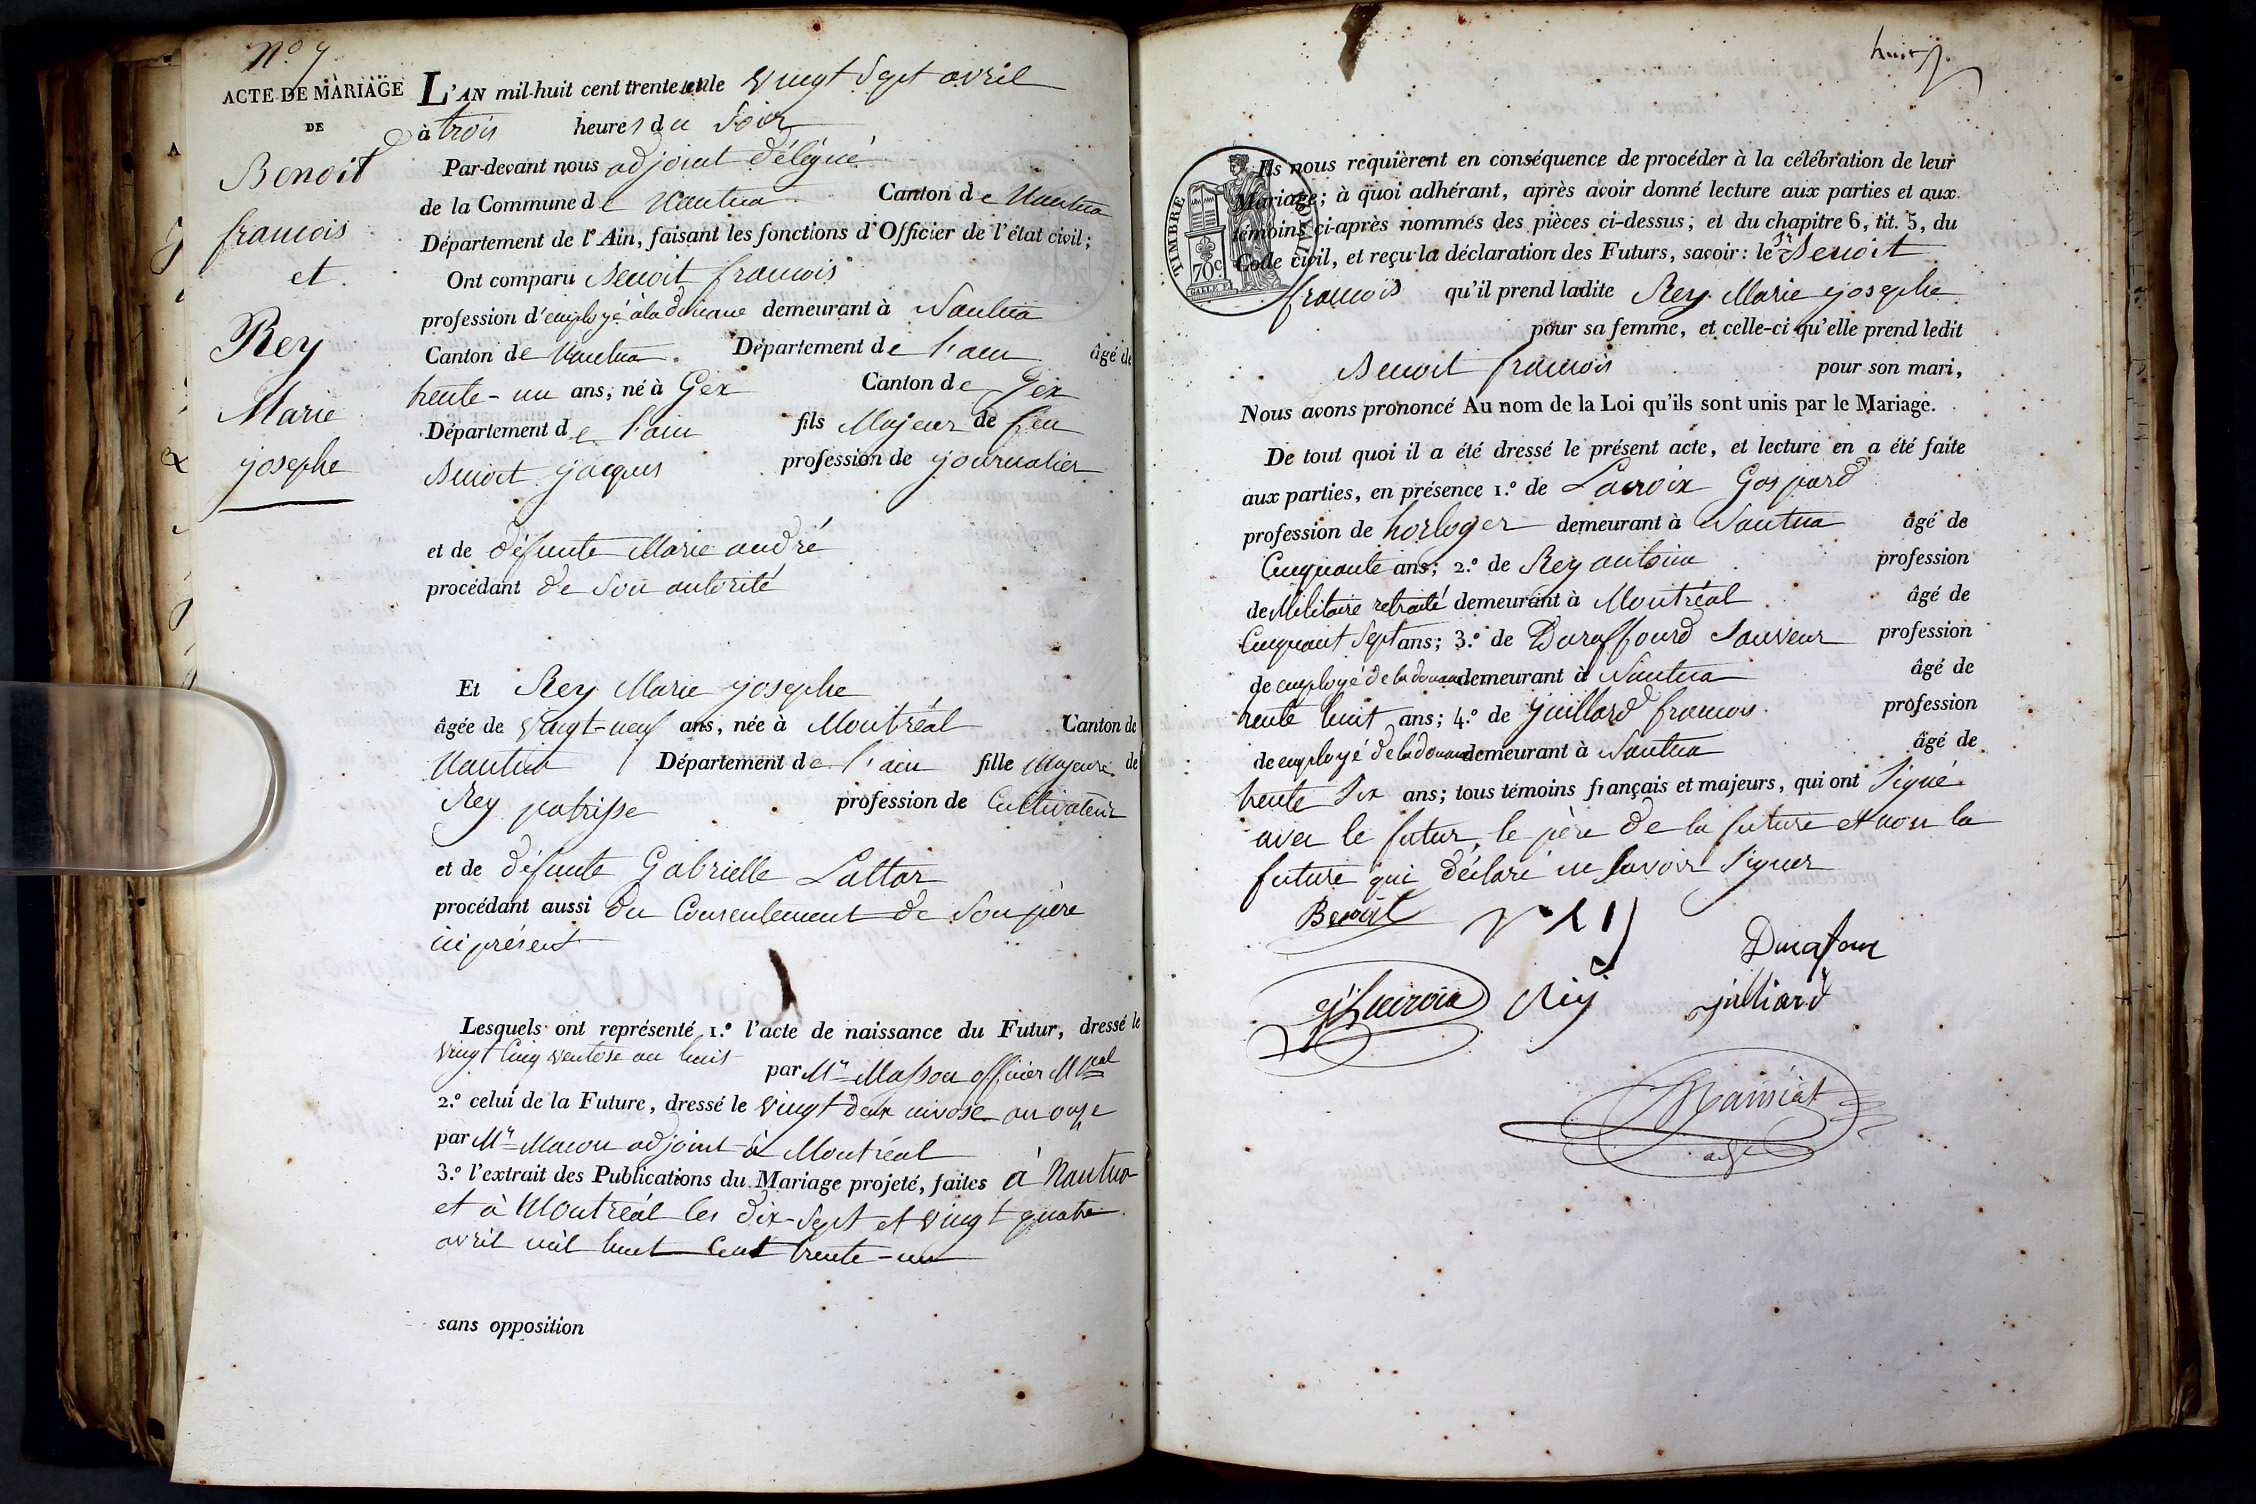 N.o 7
ACTE DE MARIAGE
DE
Benoit
francois
et
Rey
Marie
josephe
L'AN mil-huit cent trente le vingt Sept avril
à trois heures du Soir
Par-devant nous adjoint délégué
de la Commune de Nantua Canton de Nantua
Département de l'Ain, faisant les fonctions d'Officier de l'état civil;
Ont comparu Benoit francois
profession d'employé à la douane demeurant à Nantua
Canton de Nantua. Département de l'ain âgé de
trente-un ans, né à Gex Canton de Gex
Département de l'ain fils Majeur de feu
Benoit jacques profession de journalier
et de défunte Marie andré
procédant de Son autorité
Et Rey Marie josephe
âgée de vingt-neuf ans, née à Montréal Canton de
Nantua Département de l'ain fille Majeure de
Rey patrisse profession de Cultivateur
et de défunte Gabrielle Lattar
procédant aussi du Consentement de Son père
ici présent
Lesquels ont représenté 1.º l'acte de naissance du Futur, dressé le
vingt Cinq ventose an huit par Mr Masson officier Mpal
2.º celui de la Future, dressé le vingt deux nivose an onze
par Mr Macon adjoint à Montréal
3.º l'extrait des Publications du Mariage projeté, faites à Nantua
et à Montréal les dix-Sept et vingt quatre
avril mil huit Cent trente-un
sans opposition
huit
TIMBRE ROYAL
70c
Ils nous requièrent en conséquence de procéder à la célébration de leur
Mariage; à quoi adhérant, après avoir donné lecture aux parties et aux
témoins ci-après nommés des pièces ci-dessus; et du chapitre 6, tit. 5, du
Code civil, et reçu la déclaration des Futurs, savoir: le Sr Benoit
francois qu'il prend ladite Rey Marie josephe
pour sa femme, et celle-ci qu'elle prend ledit
Benoit francois pour son mari,
Nous avons prononcé Au nom de la Loi qu'ils sont unis par le Mariage.
De tout quoi il a été dressé le présent acte, et lecture en a été faite
aux parties, en présence 1.º de Lacroix Gaspard
profession de horloger demeurant à Nantua âgé de
Cinquante ans; 2.º de Rey antoine profession
de Militaire retraité demeurant à Montréal âgé de
Cinquant Sept ans; 3.º de Duraffourd Sauveur profession
de employé de la douane demeurant à Nantua âgé de
trente huit ans; 4.º de juillard francois profession
de employé de la douane demeurant à Nantua âgé de
trente Six ans; tous témoins français et majeurs, qui ont Signé
avec le futur, le père de la future et non la
future qui déclaré ne Savoir Signer
Benoit
Durafour
Gd Lacroix Rey julliard
adjt